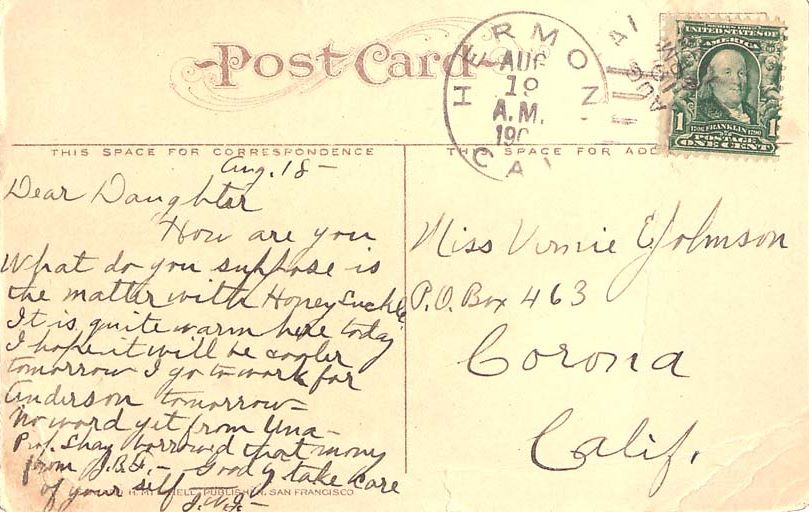 Post Card
HERMON
AUG
19
A.M.
190
CAL
SERIES 1902
UNITED STATES OF
AMERICA
1706 FRANKLIN 1790
1 1
POSTAGE
ONE CENT
THIS SPACE FOR CORRESPONDENCE
THIS SPACE FOR ADD
Aug. 18 -
Dear Daughter
How are you
What do you suppose is
the matter with Honey Suckle.
It is quite warm here today
I hope it will be cooler
tomorrow I go to work for
Anderson tomorrow -
No word yet from Una -
Prof. Shay borrowed that mony
from J.B.G. - Good by take care
of your self J.W.J. -
Miss Vernie E Johnson
P.O. Box 463
Corona
Calif.
H. MITCHELL, PUBLISHER, SAN FRANCISCO